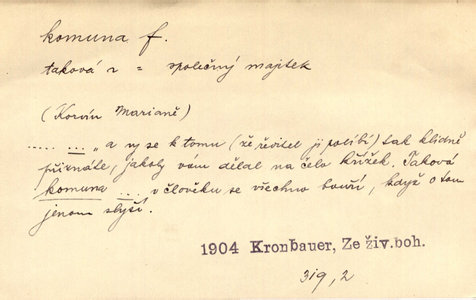 komuna f.
taková r = společný majitek
(Korvín Marianě)
..... ... „a vy se k tomu (že ředitel ji políbí) tak klidně
přiznáte, jakoby vám dělal na čelo křížek. Taková
komuna ... v člověku se všechno bouří, když o tom
jenom slyší.
1904 Kronbauer, Ze živ. boh.
319, 2